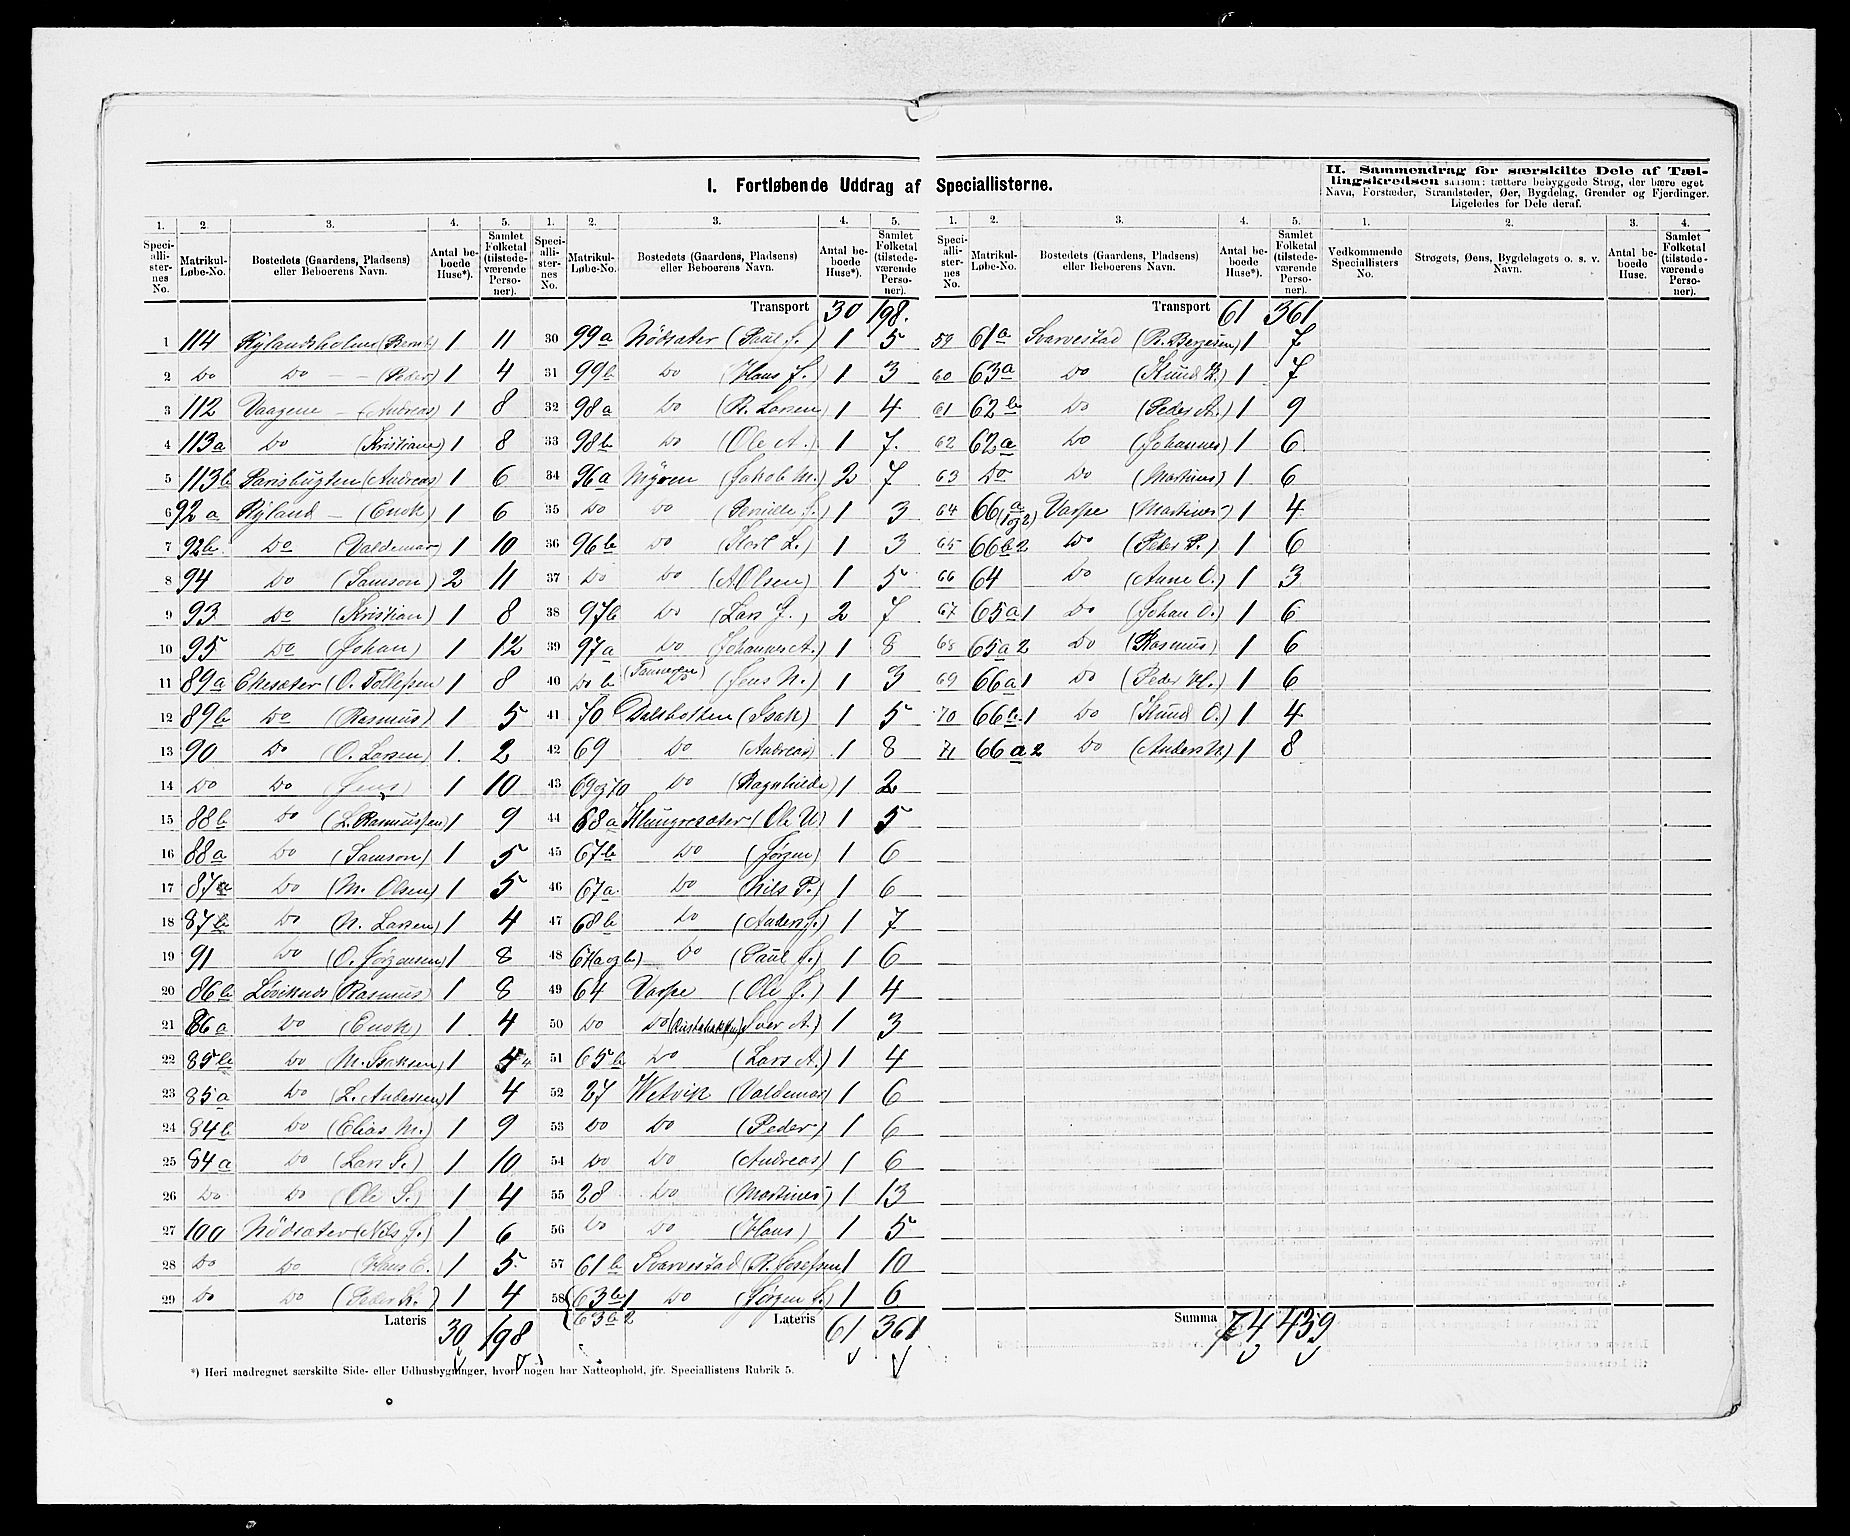 I. Fortløbende Uddrag af Speciallisterne.
II. Sammendrag for særskilte Dele af Tællingskredsen saasom: tættere bebyggede Strøg, der bære eget
Navn, Forstæder, Strandsteder, Øer, Bygdelag, Grender og Fjerdinger.
Ligeledes for Dele deraf.
1. 2. 3. 4. 5.
Speciallisternes No. Matrikul-Løbe-No. Bostedets (Gaardens, Pladsens) eller Beboerens Navn. Antal beboede Huse*). Samlet Folketal (tilstedeværende Personer).
1 114 Rylandsholm (Bernt) 1 11
2 Do Do — (Peder) 1 4
3 112 Vaagene — (Andreas) 1 8
4 113a Do (Kristiane) 1 8
5 113b (Andreas) 1 6
6 92a Ryland — (Enok) 1 6
7 92b Do (Valdemar) 1 10
8 94 Do (Samson) 2 11
9 93 Do (Kristian) 1 8
10 95 Do (Johan) 1 12
11 89a Ekesæter (O. Tollefsen 1 8
12 89b Do (Rasmus) 1 5
13 90 Do (O. Larsen) 1 2
14 Do Do (Jens) 1 10
15 88b Do (L. Rasmussen) 1 9
16 88a Do (Samson) 1 5
17 87a Do (M. Olsen) 1 5
18 87b Do (N. Larsen) 1 4
19 91 Do (O. Jørgensen) 1 8
20 86b Løviknes (Rasmus) 1 8
21 86a Do (Enok) 1 4
22 85b Do (M. Isaksen) 1 4
23 85a Do (L. Andersen) 1 4
24 84b Do (Elias M.) 1 9
25 84a Do (Lars S.) 1 10
26 Do Do (Ole S.) 1 4
27 100 Nödsæter (Nils J.) 1 6
28 Do Do (Hans E.) 1 5
29 Do Do (Peder K.) 1 4
Lateris 30 198
1. 2. 3. 4. 5.
Speciallisternes No. Matrikul-Løbe-No. Bostedets (Gaardens, Pladsens) eller Beboerens Navn. Antal beboede Huse*). Samlet Folketal (tilstedeværende Personer).
Transport 30 198.
30 99a Nödsæter (Paul S.) 1 5
31 99b Do (Hans J.) 1 3
32 98a Do (R. Larsen) 1 4
33 98b Do (Ole A.) 1 7
34 96a Myren (Jakob M.) 2 7
35 Do Do (Pernille S.) 1 3
36 96b Do 1 3
37 Do Do (A Olsen) 1 5
38 97b Do (Lars J.) 2 7
39 97a Do (Johannes A.) 1 8
40 Do b Do (Jens N.) 1 3
41 70 Dalsbotten (Isak) 1 5
42 69 Do (Andreas) 1 8
43 69 og 70 Do (Ragnhilde) 1 2
44 68a Klungresæter (Ole U) 1 5
45 67b Do (Jørgen) 1 6
46 67a Do (Nils P.) 1 6
47 68b Do (Anders J.) 1 7
48 67(a og b) Do (Paul J.) 1 6
49 64 Varpe (Ole J.) 1 4
50 Do Do (Iver A.) 1 3
51 65b Do (Lars A.) 1 4
52 27 Hetvik (Valdemar) 1 6
53 Do Do (Peder) 1 6
54 Do Do (Andreas) 1 6
55 28 Do (Martines) 1 13
56 Do Do (Hans) 1 5
57 61b Svarvestad (R. Josefsen 1 10
58 63b1 Do (Jørgen S.) 1 6
63b2
Lateris 61 361
1. 2. 3. 4. 5.
Speciallisternes No. Matrikul-Løbe-No. Bostedets (Gaardens, Pladsens) eller Beboerens Navn. Antal beboede Huse*). Samlet Folketal (tilstedeværende Personer).
Transport 61 361
59 61a Svarvestad (R. Bergesen) 1 7
60 63a Do (Knud R.) 1 7
61 62b Do (Peder A.) 1 9
62 62a Do (Johannes) 1 6
63 Do Do (Martines) 1 6
64 66a (1 og 2) Varpe (Martines) 1 4
65 66b2 Do (Peder P.) 1 6
66 64 Do (Anne O.) 1 3
67 65a1 Do (Johan O.) 1 6
68 65a2 Do (Rasmus) 1 6
69 66a1 Do (Peder H.) 1 6
70 66b1 Do (Knud O.) 1 4
71 66a2 Do (Anders N.) 1 8
Summa 74 439
1. 2. 3. 4.
Vedkommende Speciallisters No. Strøgets, Øens, Bygdelagets o. s. v. Navn. Antal beboede Huse. Samlet Folketal (tilstedeværende Personer).
*) Heri medregnet særskilte Side- eller Udhusbygninger, hvori nogen har Natteophold, jfr. Speciallistens Rubrik 5.